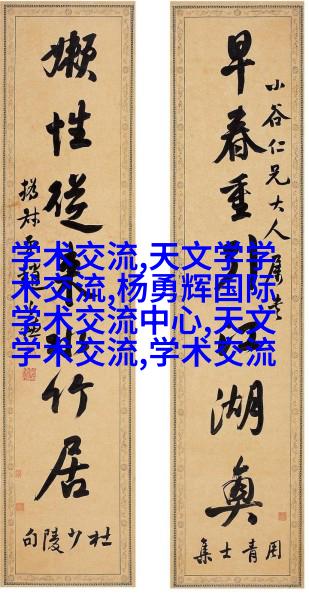 早春重引江湖興
小谷仁兄大人屬
周青士集
嬾性從來水竹居
杜少陵句
学术交流,天文学学
术交流,杨勇辉国际
学术交流中心,天文
学术交流,学术交流